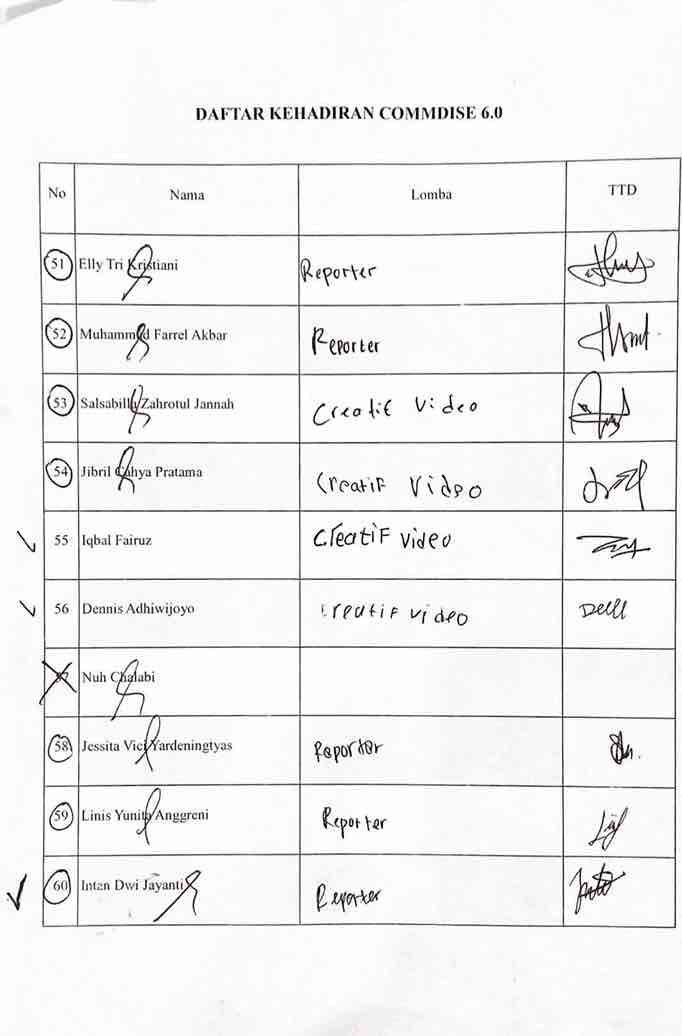 DAFTAR KEHADIRAN COMMDISE 6.0
No Nama Lomba TTD
51 Elly Tri Kristiani Reporter
52 Muhammad Farrel Akbar Reporter
53 Salsabilla Zahrotul Jannah Creatif Video
54 Jibril Cahya Pratama Creatif Video
55 Iqbal Fairuz Creatif Video
56 Dennis Adhiwijoyo Creatif Video
57 Nuh Chalabi
58 Jessita Vici Yardeningtyas Reporter
59 Linis Yunita Anggreni Reporter
60 Intan Dwi Jayanti Reporter